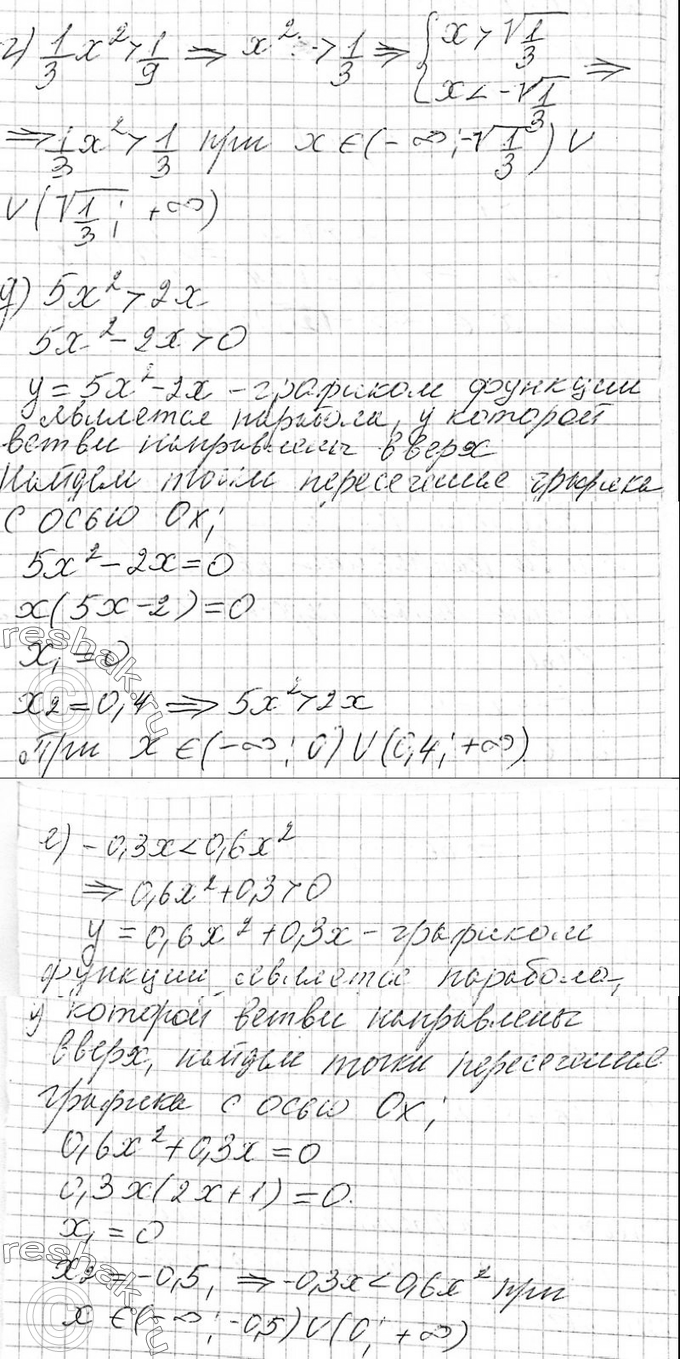 г) 1/3 x² > 1/9 ⇒ x² > 1/3 ⇒ { x > √1/3 x < -√1/3 ⇒
⇒ 1/3 x² > 1/3 при x ∈ (-∞; -√1/3) ∪
∪ (√1/3; +∞)
д) 5x² > 2x
5x² - 2x > 0
y = 5x² - 2x - графиком функции
является парабола, у которой
ветви направлены вверх
Найдем точки пересечение графика
с осью Ox;
5x² - 2x = 0
x(5x - 2) = 0
x₁ = 0
x₂ = 0,4 ⇒ 5x² > 2x
При x ∈ (-∞; 0) ∪ (0,4; +∞)
е) -0,3x < 0,6x²
⇒ 0,6x² + 0,3 > 0
y = 0,6x² + 0,3x - графиком
функции является парабола,
у которой ветви направлены
вверх, найдем точки пересечение
графика с осью Ox;
0,6x² + 0,3x = 0
0,3x(2x + 1) = 0.
x₁ = 0
x₂ = -0,5, ⇒ -0,3x < 0,6x² при
x ∈ (-∞; -0,5) ∪ (0; +∞)
reshak.ru
reshak.ru